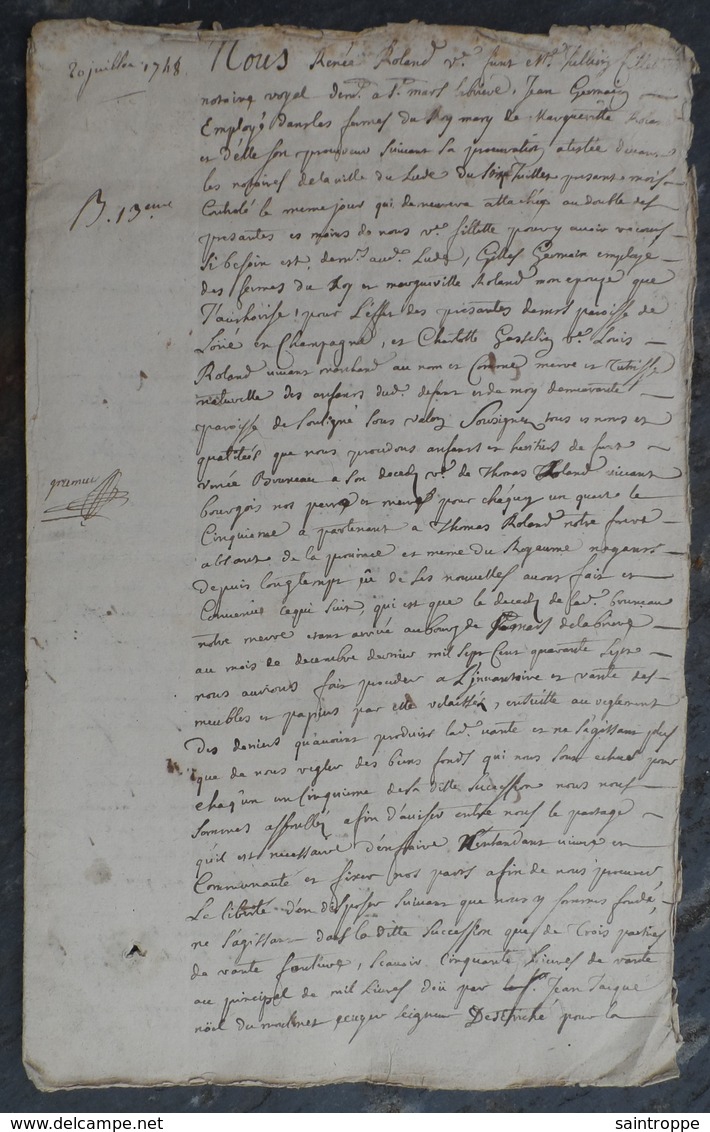 20 juillet 1748
Nous Renée Roland ve. funt Me.
notaire royal demt. a St. mars labrière, Jean Germain
Employé Dans les fermes du Roy mary de Margueritte Roland
et D'elle son procureur suivant sa procuration atestée devant
les notaires de la ville du Lude du six juillet present mois
Controlé le meme jour qui demeurera attachée au double des
presantes es mains de nous ve. fillette pour y avoir recours
B. 13eme
si besoin est, demt. aud. Lude, Gilles Germain employé
des fermes du Roy et margueritte Roland mon epouze que
J'authorise pour L'effet des presantes demt. paroisse de
Loüé en Champagne, et Charlotte Gasselin ve. Louis
Roland vivant marchand au nom et Comme merre et Tutrisse
naturelle des anfans dud. defunt et de moy demeurante
paroisse de Souligné sous vallon Soussignez tous es noms et
qualités que nous procedons anfans et heritiers de funt
renée Bruneau a son decedz ve. de Thomas Roland vivant
bourgois nos perre et merre pour chaqun un quart le
gremuc
Cinquieme apartenant a Thomas Roland notre frere
absant de la province et meme du Royaume n'ayant
Depuis Longtempt eü de ses nouvelles avons fait et
Convenus cequi suit, qui est que le decedz de lad. bruneau
notre merre etant arrivé au bourg de St. mars de la briere
au mois de decembre dernier mil sept Cent quarante sept
nous aurions fait proceder a L'invantoire et vante des
meubles et papiers par elle delaissés, ensuitte au reglement
Des deniers qu'avoint produits lad. vante et ne s'agissant plus
que de nous regler des biens fonds qui nous sont echus pour
chaqun un Cinquieme de la ditte succession nous nous
sommes assemblez afin d'aviser entre nous le partage
qu'il est necessaire d'en faire N'entandant vivre en
Communauté et fixer nos parts afin de nous procurer
Le liberté d'en disposer suivant que nous y sommes fondé,
ne s'agissant dans la ditte succession que de Trois parties
de rante fonciere, scavoir Cinquante Livres de rante
au principal de mil Livres deü par le sr. Jean Jacque
nöel du moulinet ecuyer seigneur Desetriché pour la
saintroppe